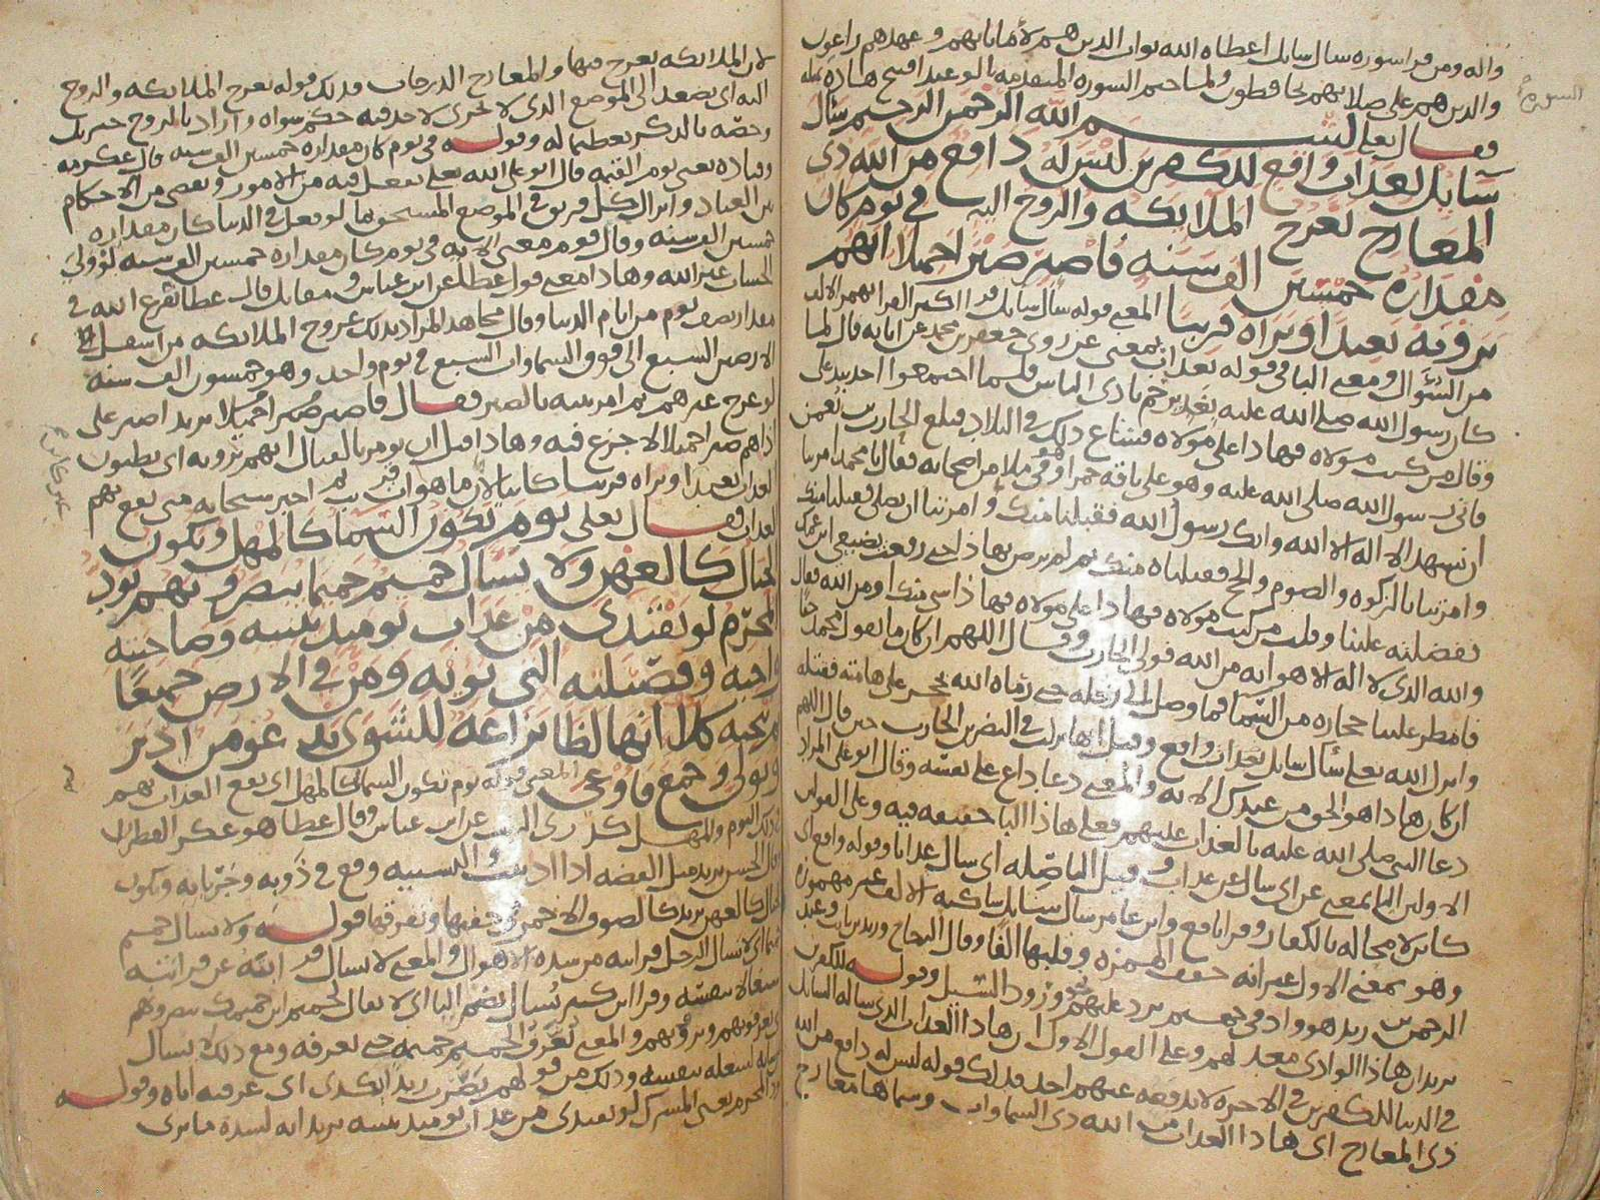 واله ومن قرا سوره سال سايل اعطاه الله ثواب الدين هم لاماناتهم وعهدهم راعون
والدين هم على صلاتهم يحافطون ولما ختم السوره المتقدمه بالوعيد افتتح هاذه بمثله
السورة
فقال تعلى بسم الله الرحمن الرحيم سأل
سايل بعداب واقع للكافرين ليس له دافع من الله ذى
المعارج تعرج الملايكه والروح اليه فى يوم كان
مقداره خمسين الف سنه فاصبر صبرا جميلا انهم
يرونه بعيدا ونراه قريبا المعنى قوله سال سايل قرا اكثر القرا بهمز الالف
من السؤال ومعنى البا فى قوله بعداب بمعنى عن روى جعفر بن محمد عن ابايه قال لما
كان رسول الله صلى الله عليه بغدير خم نادى الناس فلما اجتمعوا اخد بيد على
وقال من كنت مولاه فهاذا على مولاه فشاع ذلك فى البلاد فبلغ الحارث بن نعمن
فاتى رسول الله صلى الله عليه وهو على ناقه حمرا وهو فى ملا من اصحابه فقال يا محمد امرتنا
ان نشهد الا اله الا الله وانك رسول الله فقبلنا منك وامرتنا ان نصلى فقبلنا منك
وامرتنا بالزكوه والصوم والحج فقبلناه منك ثم لم ترض بهاذا حتى رفعت بضبعى ابن عمك
تفضلته علينا وقلت من كنت مولاه فهاذا على مولاه فهاذا شى منك او من الله فقال
والله الذى لا اله الا هو انه من الله فولى الحارث وقال اللهم ان كان ما يقول محمد حقا
فامطر علينا حجاره من السما فما وصل الى رحله حتى رماه الله بحجر على هامته فقتله
وانزل الله تعلى سأل سايل بعداب واقع وقيل انها نزلت فى النضر بن الحارث حين قال اللهم
ان كان هاذا هو الحق من عندك الايه والمعنى دعا داع على نفسه وقال ابو على المراد
دعا النبى صلى الله عليه بالعداب عليهم فعلى هاذا البا حقيقه فيه وعلى القولين
الاولين البا بمعنى عن اى سال عن عداب وقيل البا صله اى سال عدابا وقوله واقع اى
كاين لا محاله بالكفار وقرا نافع وابن عامر سال سايل ساكنه الالف غير مهموزه
وهو بمعنى الاول غير انه خفف الهمزه وقلبها الفا وقال الزجاج وزيد بن ثابت وعبد
الرحمن بن زيد هو واد فى جهنم يرد عليهم نحو ورود السيل وقوله للكفرين
يريد ان هاذا الوادى معد لهم وعلى القول الاول ان هاذا العداب الذى ساله السايل
فى الدنيا للكفرين فى الاخره لا يدفعه عنهم احد فدلك قوله ليس له دافع من الله
ذى المعارج اى هاذا العداب من الله ذى السماوات وسماها معارج
لان الملايكه تعرج فيها والمعارج الدرجات فدلك قوله تعرج الملايكه والروح
اليه اى يصعد الى الموضع الذى لا يجرى لاحد فيه حكم سواه واراد بالروح جبريل
وخصه بالذكر تعطيما له وقوله فى يوم كان مقداره خمسين الف سنه قال عكرمه
وقتاده يعنى يوم القيمه قال ابو على الله تعلى يفعل فيه من الامور ويقضى من الاحكام
بين العباد وانزال كل فريق فى الموضع المستحق ما لو فعل فى الدنيا كان مقداره
خمسين الف سنه وقال قوم معنى الايه فى يوم كان مقداره خمسين الف سنه لو ولى
الحساب غير الله وهاذا معنى قول عطا عن ابن عباس ومقاتل قال عطا ويفرغ الله فى
مقدار نصف يوم من ايام الدنيا وقال مجاهد المراد بدلك عروج الملايكه من اسفل
الارضين السبع الى فوق السماوات السبع فى يوم واحد وهو خمسون الف سنه
لو عرج غيرهم ثم امر نبيه بالصبر فقال فاصبر صبرا جميلا يريد اصبر على
اذاهم صبرا جميلا لا جزع فيه وهاذا قبل ان يومر بالقتال انهم يرونه اى يطنون
العداب بعيدا ونراه قريبا كاينا لان ما هو ات قريب ثم اخبر سبحانه متى يقع بهم
غير كاين
العداب فقال تعلى يوم تكون السما كالمهل وتكون
الجبال كالعهن ولا يسال حميم حميما يبصرونهم يود
المجرم لو يفتدى من عذاب يوميد ببنيه وصاحبته
واخيه وفصيلته التى تويه ومن فى الارض جميعا
ثم ينجيه كلا انها لظا نزاعه للشوى تدعو من ادبر
وتولى وجمع فاوعى المعنى قوله يوم تكون السما كالمهل اى يقع العداب بهم
ذلك اليوم والمهل كدردى الزيت عن ابن عباس وقال عطا هو عكر القطران
وقال الحسن يريد مثل الفضه اذا اديبت والتشبيه وقع فى ذوبه وجريانه وتكون
الجبال كالعهن يريد كالصوف الاحمر فى خفتها وتفرقها قوله ولا يسال حميم
حميما اى لا يسال الرجل قرابته من شده الاهوال والمعنى لا يسال قرابته عن قرابته
اشتغالا بنفسه وقرا ابن كثير يسال بضم اليا اى لا يقال لحميم اين حميمك يبصرونهم
اى يعرفونهم ويرونهم والمعنى يعرف الحميم حميمه حتى يعرفه ومع ذلك لا يسال
لشغله بنفسه وذلك من قولهم بصرت زيدا بكدى اى عرفته اياه وقوله
يود المجرم يعنى المشرك لو يفتدى من عداب يوميد ببنيه يريد انه لشده ما يرى